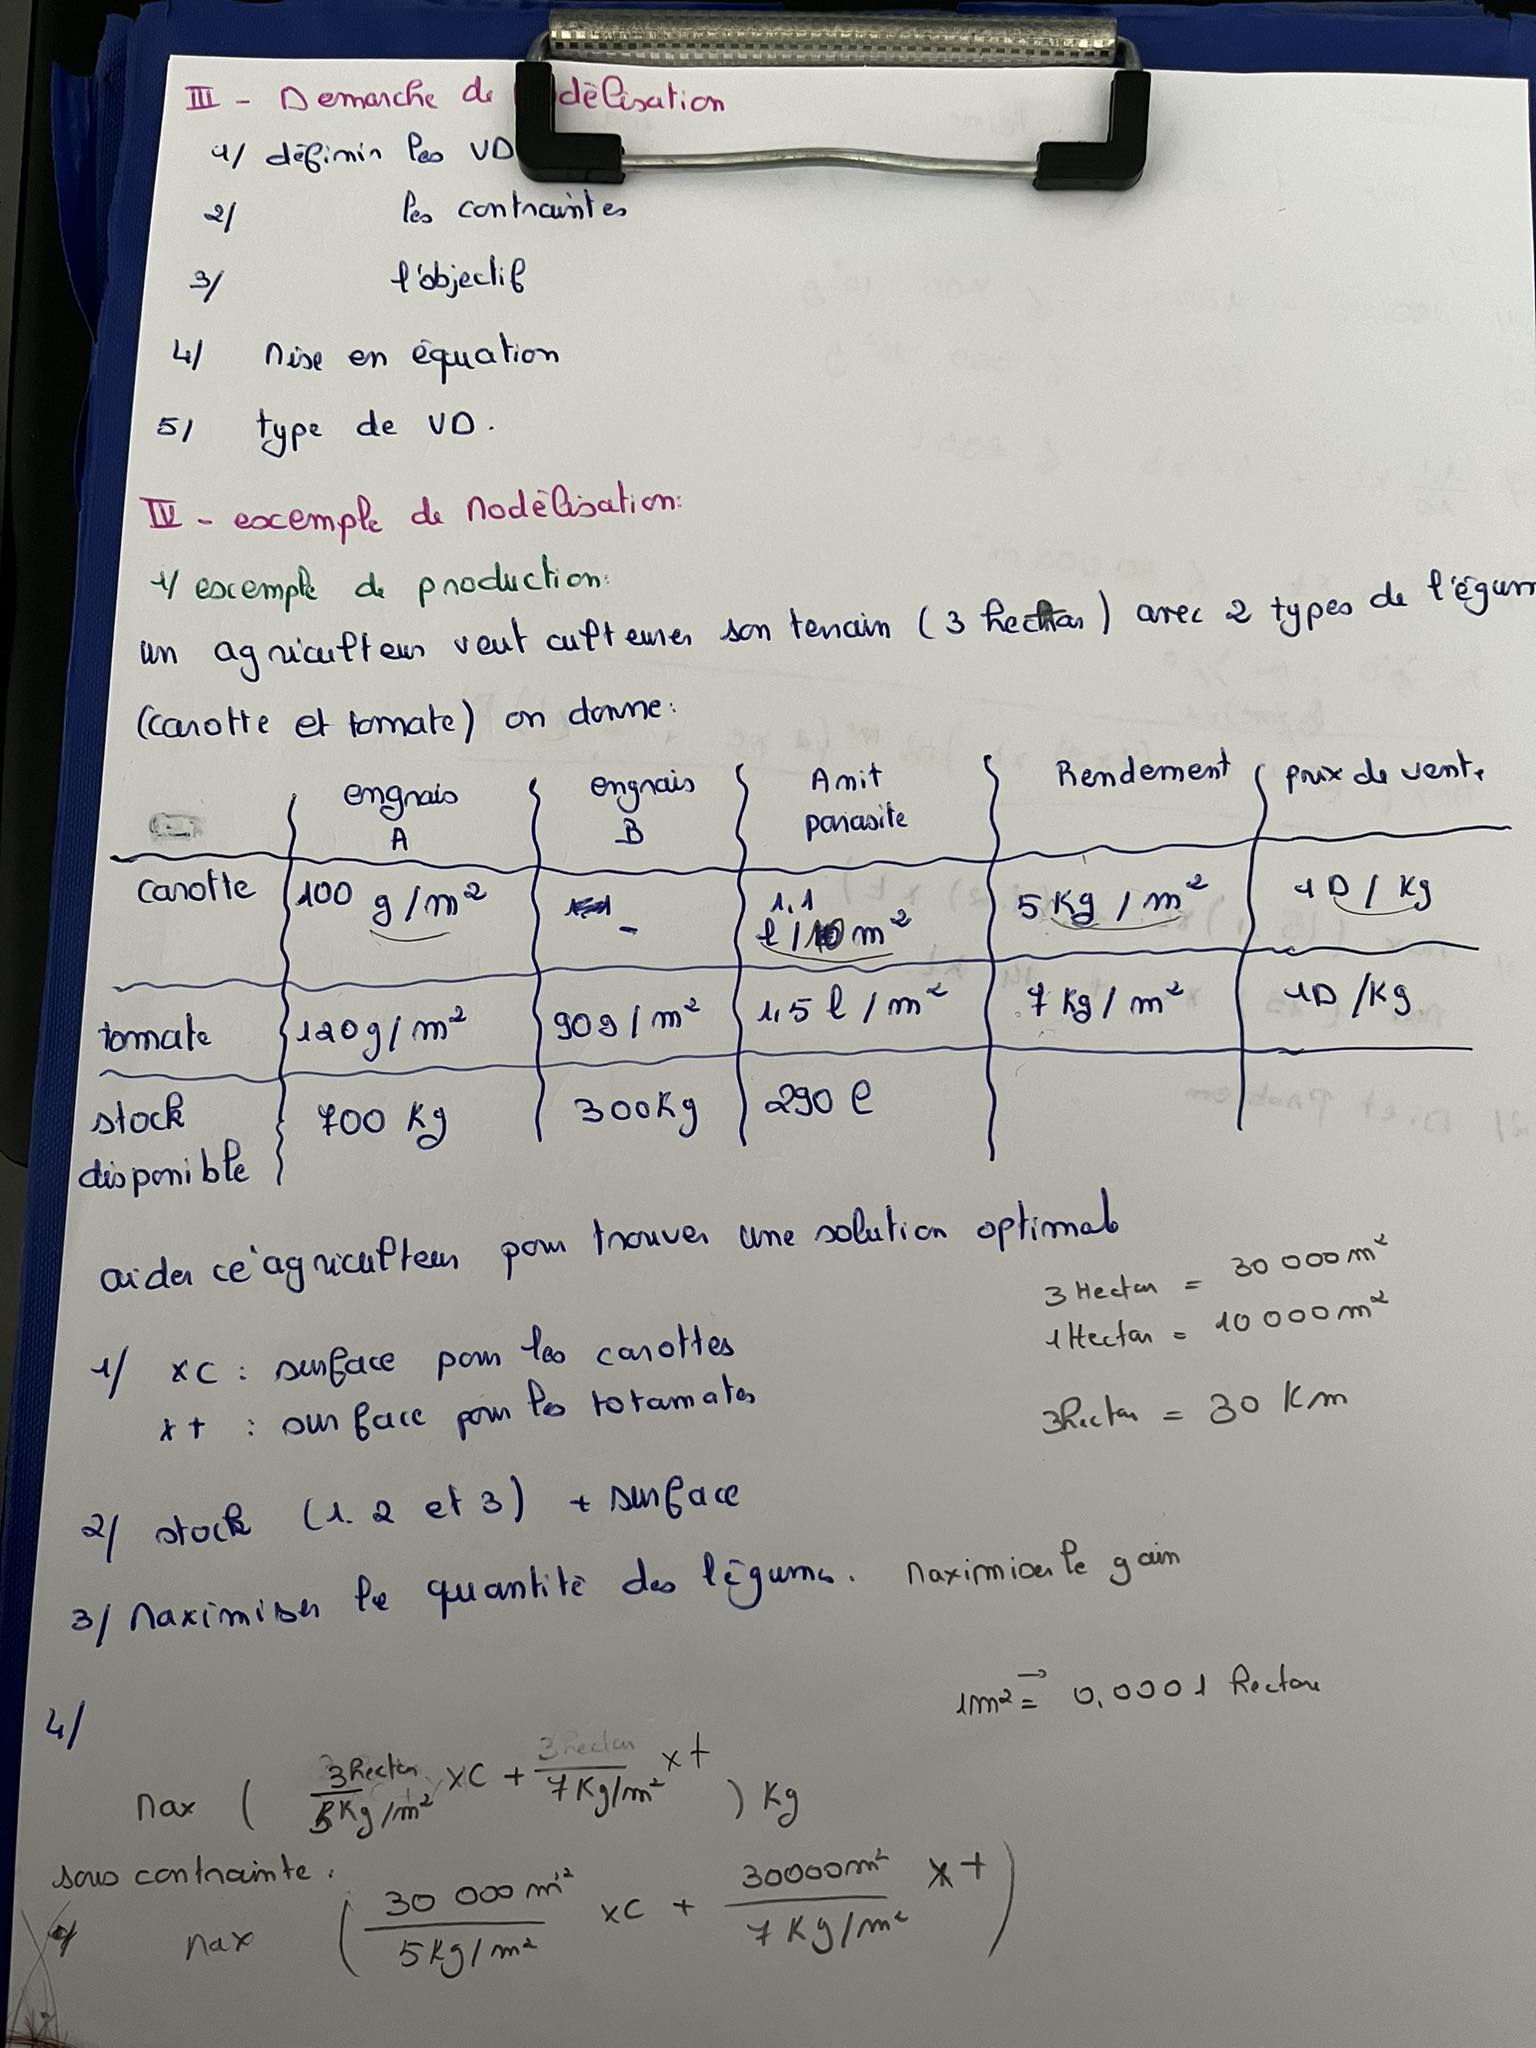 III - Demarche de délisation
1/ définir les VD
2/ les contraintes
3/ l'objectif
4/ Mise en équation
5/ type de VD.
IV - excemple de Modélisation:
1/ excemple de production:
un agriculteur veut culteurer son terrain (3 hectar) avec 2 types de l'égum
(carotte et tomate) on donne:
engrais A engrais B Anit parasite Rendement prix de vente
carotte 100 g/m² - 1,1 l/10m² 5 Kg/m² 1D/Kg
tomate 120g/m² 90g/m² 1,5 l/m² 7 Kg/m² 1D/Kg
stock disponible 700 Kg 300Kg 290 l
aider ce agriculteur pour trouver une solution optimal
3 Hectar = 30 000 m²
1 Hectar = 10 000 m²
3hectar = 30 Km
1/ xc: surface pour les carottes
xt : surface pour les totamates
2/ stock (1. 2 et 3) + surface
3/ Maximiser le quantité des légums. Maximiser le gain
1m² = 0,0001 hectare
4/
Max ( 3hectar / 5Kg/m² xc + 3hectar / 7Kg/m² xt ) Kg
sous contrainte:
Max ( 30 000 m² / 5kg/m² xc + 30000m² / 7Kg/m² xt )